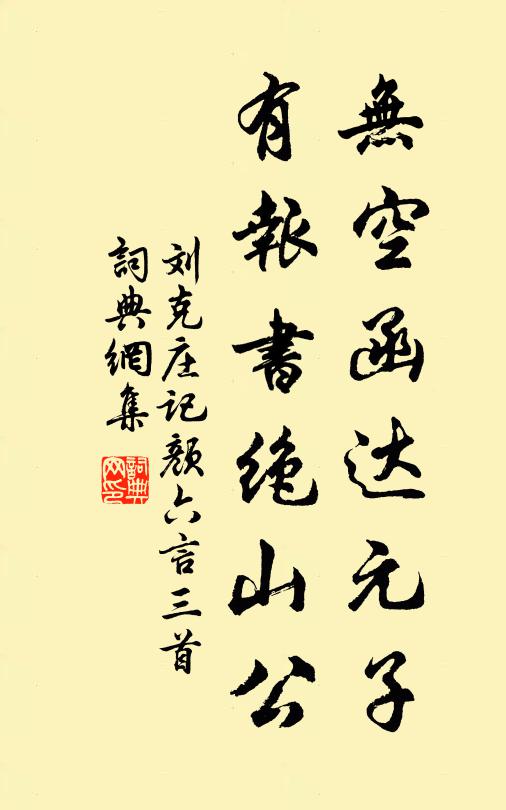 無空函达元子
有報書绝山公
刘克庄记颜六言三首
詞典網集
詞典网印